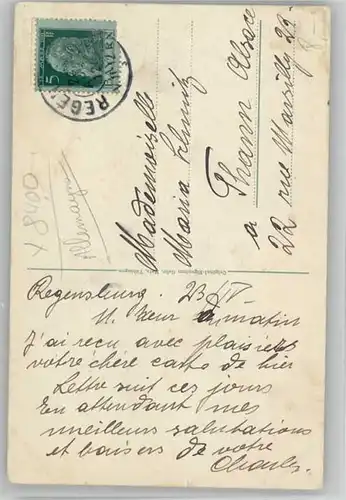 BAYERN
5
REGEN
Mademoiselle
Maria Schmitz
a Thann Alsace
22 rue Marsilly 22
x 8400
Allemagne
Regensburg. 23 IV
11. heur du matin
J'ai reçu avec plaisir
votre chère carte de hier
Lettre suit ces jours
En attendant mes
meilleurs salutations
et baisers de votre
Charles